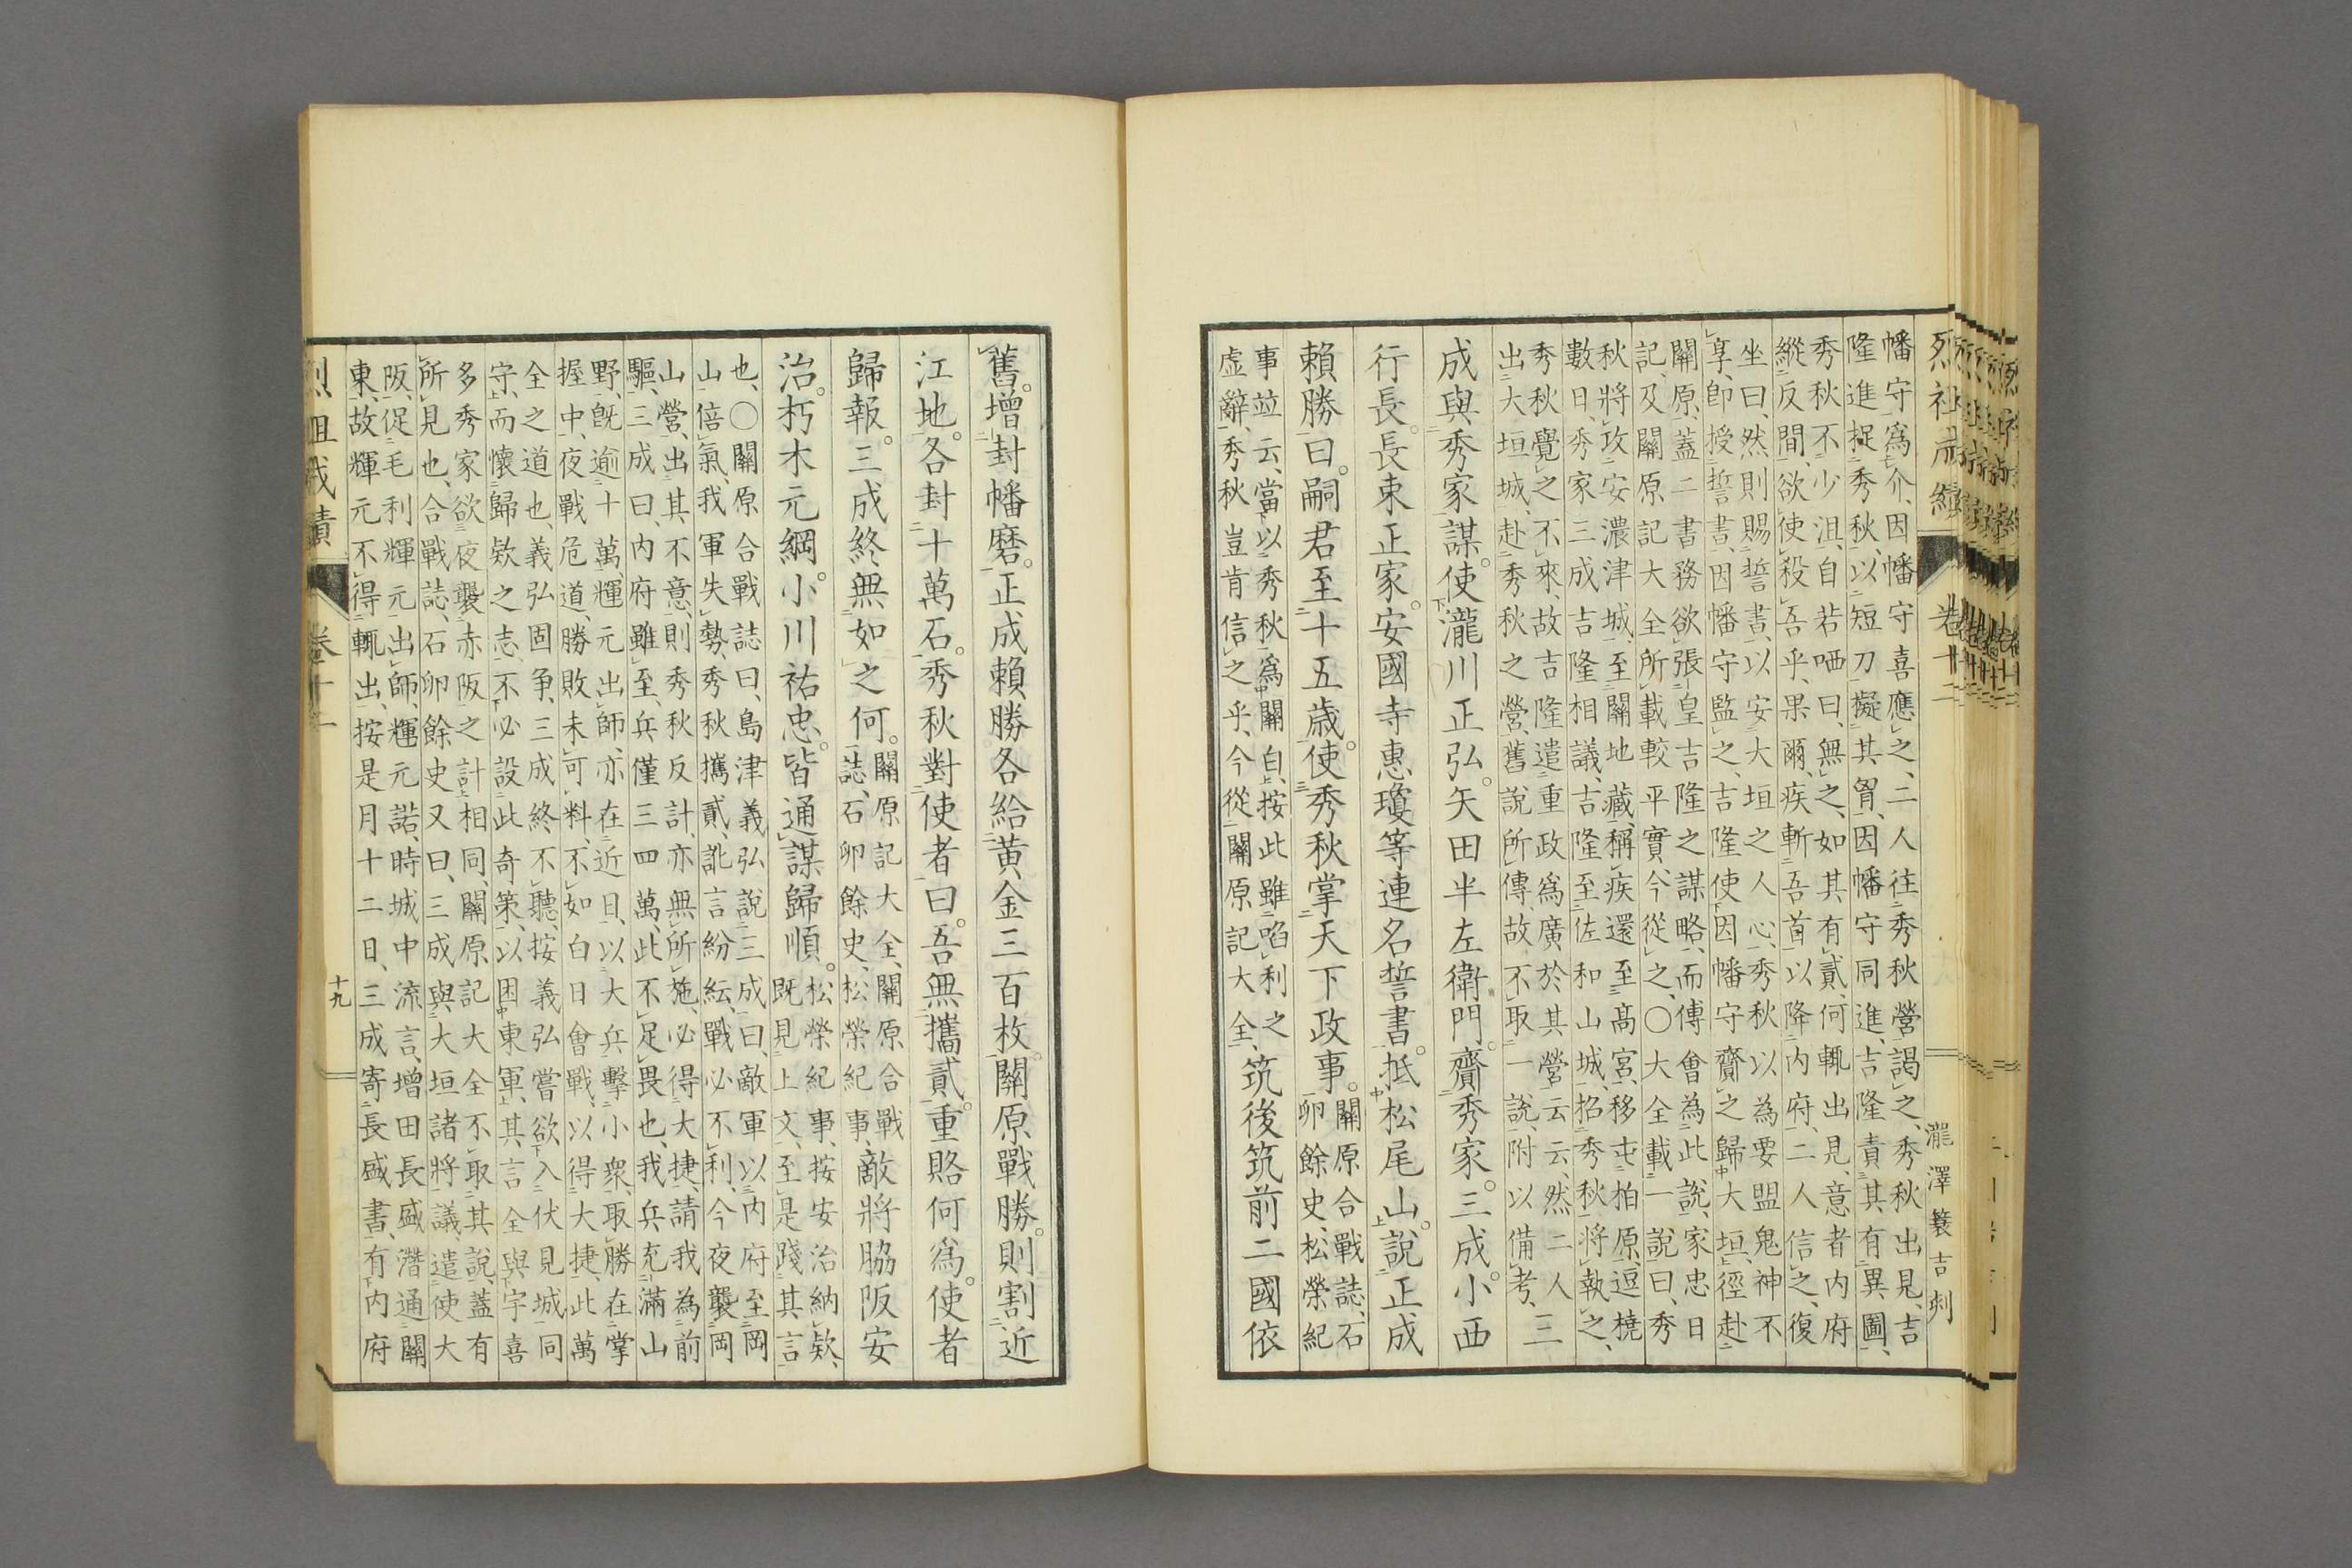 幡守爲介、因幡守喜應之、二人往秀秋營謁之、秀秋出見、吉
隆進捉秀秋、以短刀擬其胷、因幡守同進、吉隆責其有異圖、
秀秋不少沮、自若哂曰、無之、如其有貳、何輒出見、意者內府
縱反間、欲使殺吾乎、果爾、疾斬吾首以降內府、二人信之、復
坐曰、然則賜誓書、以安大垣之人心、秀秋以為要盟鬼神不
享、卽授誓書、因幡守監之、吉隆使因幡守齎之歸大垣、徑赴
關原、蓋二書務欲張皇吉隆之謀略、而傅會為此說、家忠日
記、及關原記大全所載較平實、今從之、○大全載一說曰、秀
秋將攻安濃津城、至關地藏、稱疾還至高宮、移屯柏原、逗橈
數日、秀家三成吉隆相議、吉隆至佐和山城、招秀秋將執之、
秀秋覺之不來、故吉隆遣重政爲廣、於其營云云、然二人三
出大垣城、赴秀秋之營、舊說所傳、故不取一說、附以備考、
成與秀家謀。使瀧川正弘。矢田半左衛門。齎秀家。三成。小西
行長。長束正家。安國寺惠瓊等連名誓書。抵松尾山。說正成
賴勝曰。嗣君至十五歲。使秀秋掌天下政事。關原合戰誌、石
卵餘史、松榮紀
事竝云、當以秀秋爲關白、按此雖啗利之
虛辭、秀秋豈肯信之乎、今從關原記大全、筑後筑前二國依
烈祖成績 卷十二 瀧澤簑吉刻
舊。增封幡磨。正成賴勝各給黃金三百枚。關原戰勝。則割近
江地。各封十萬石。秀秋對使者曰。吾無攜貳。重賂何爲。使者
歸報。三成終無如之何。關原記大全、關原合戰
誌、石卵餘史、松榮紀事、敵將脇阪安
治。朽木元綱。小川祐忠。皆通謀歸順。松榮紀事、按安治納欵、
既見上文、至是踐其言
也、○關原合戰誌曰、島津義弘說三成曰、敵軍以內府至岡
山倍氣、我軍失勢、秀秋攜貳、訛言紛紜、戰必不利、今夜襲岡
山營、出其不意、則秀秋反計、亦無所施、必得大捷、請我為前
驅、三成曰、內府雖至、兵僅三四萬、此不足畏也、我兵充滿山
野、旣逾十萬、輝元出師、亦在近日、以大兵擊小衆、取勝在掌
握中、夜戰危道、勝敗未可料、不如白日會戰、以得大捷、此萬
全之道也、義弘固爭、三成終不聽、按義弘嘗欲入伏見城、同
守、而懷歸欵之志、不必設此奇策、以困東軍、其言全與宇喜
多秀家欲夜襲赤阪之計相同、關原記大全不取其說、蓋有
所見也、合戰誌、石卵餘史又曰、三成與大垣諸將議、遣使大
阪、促毛利輝元出師、輝元諾、時城中流言、增田長盛潛通關
東、故輝元不得輒出、按是月十二日、三成寄長盛書、有內府
烈祖成績 卷十二 十九